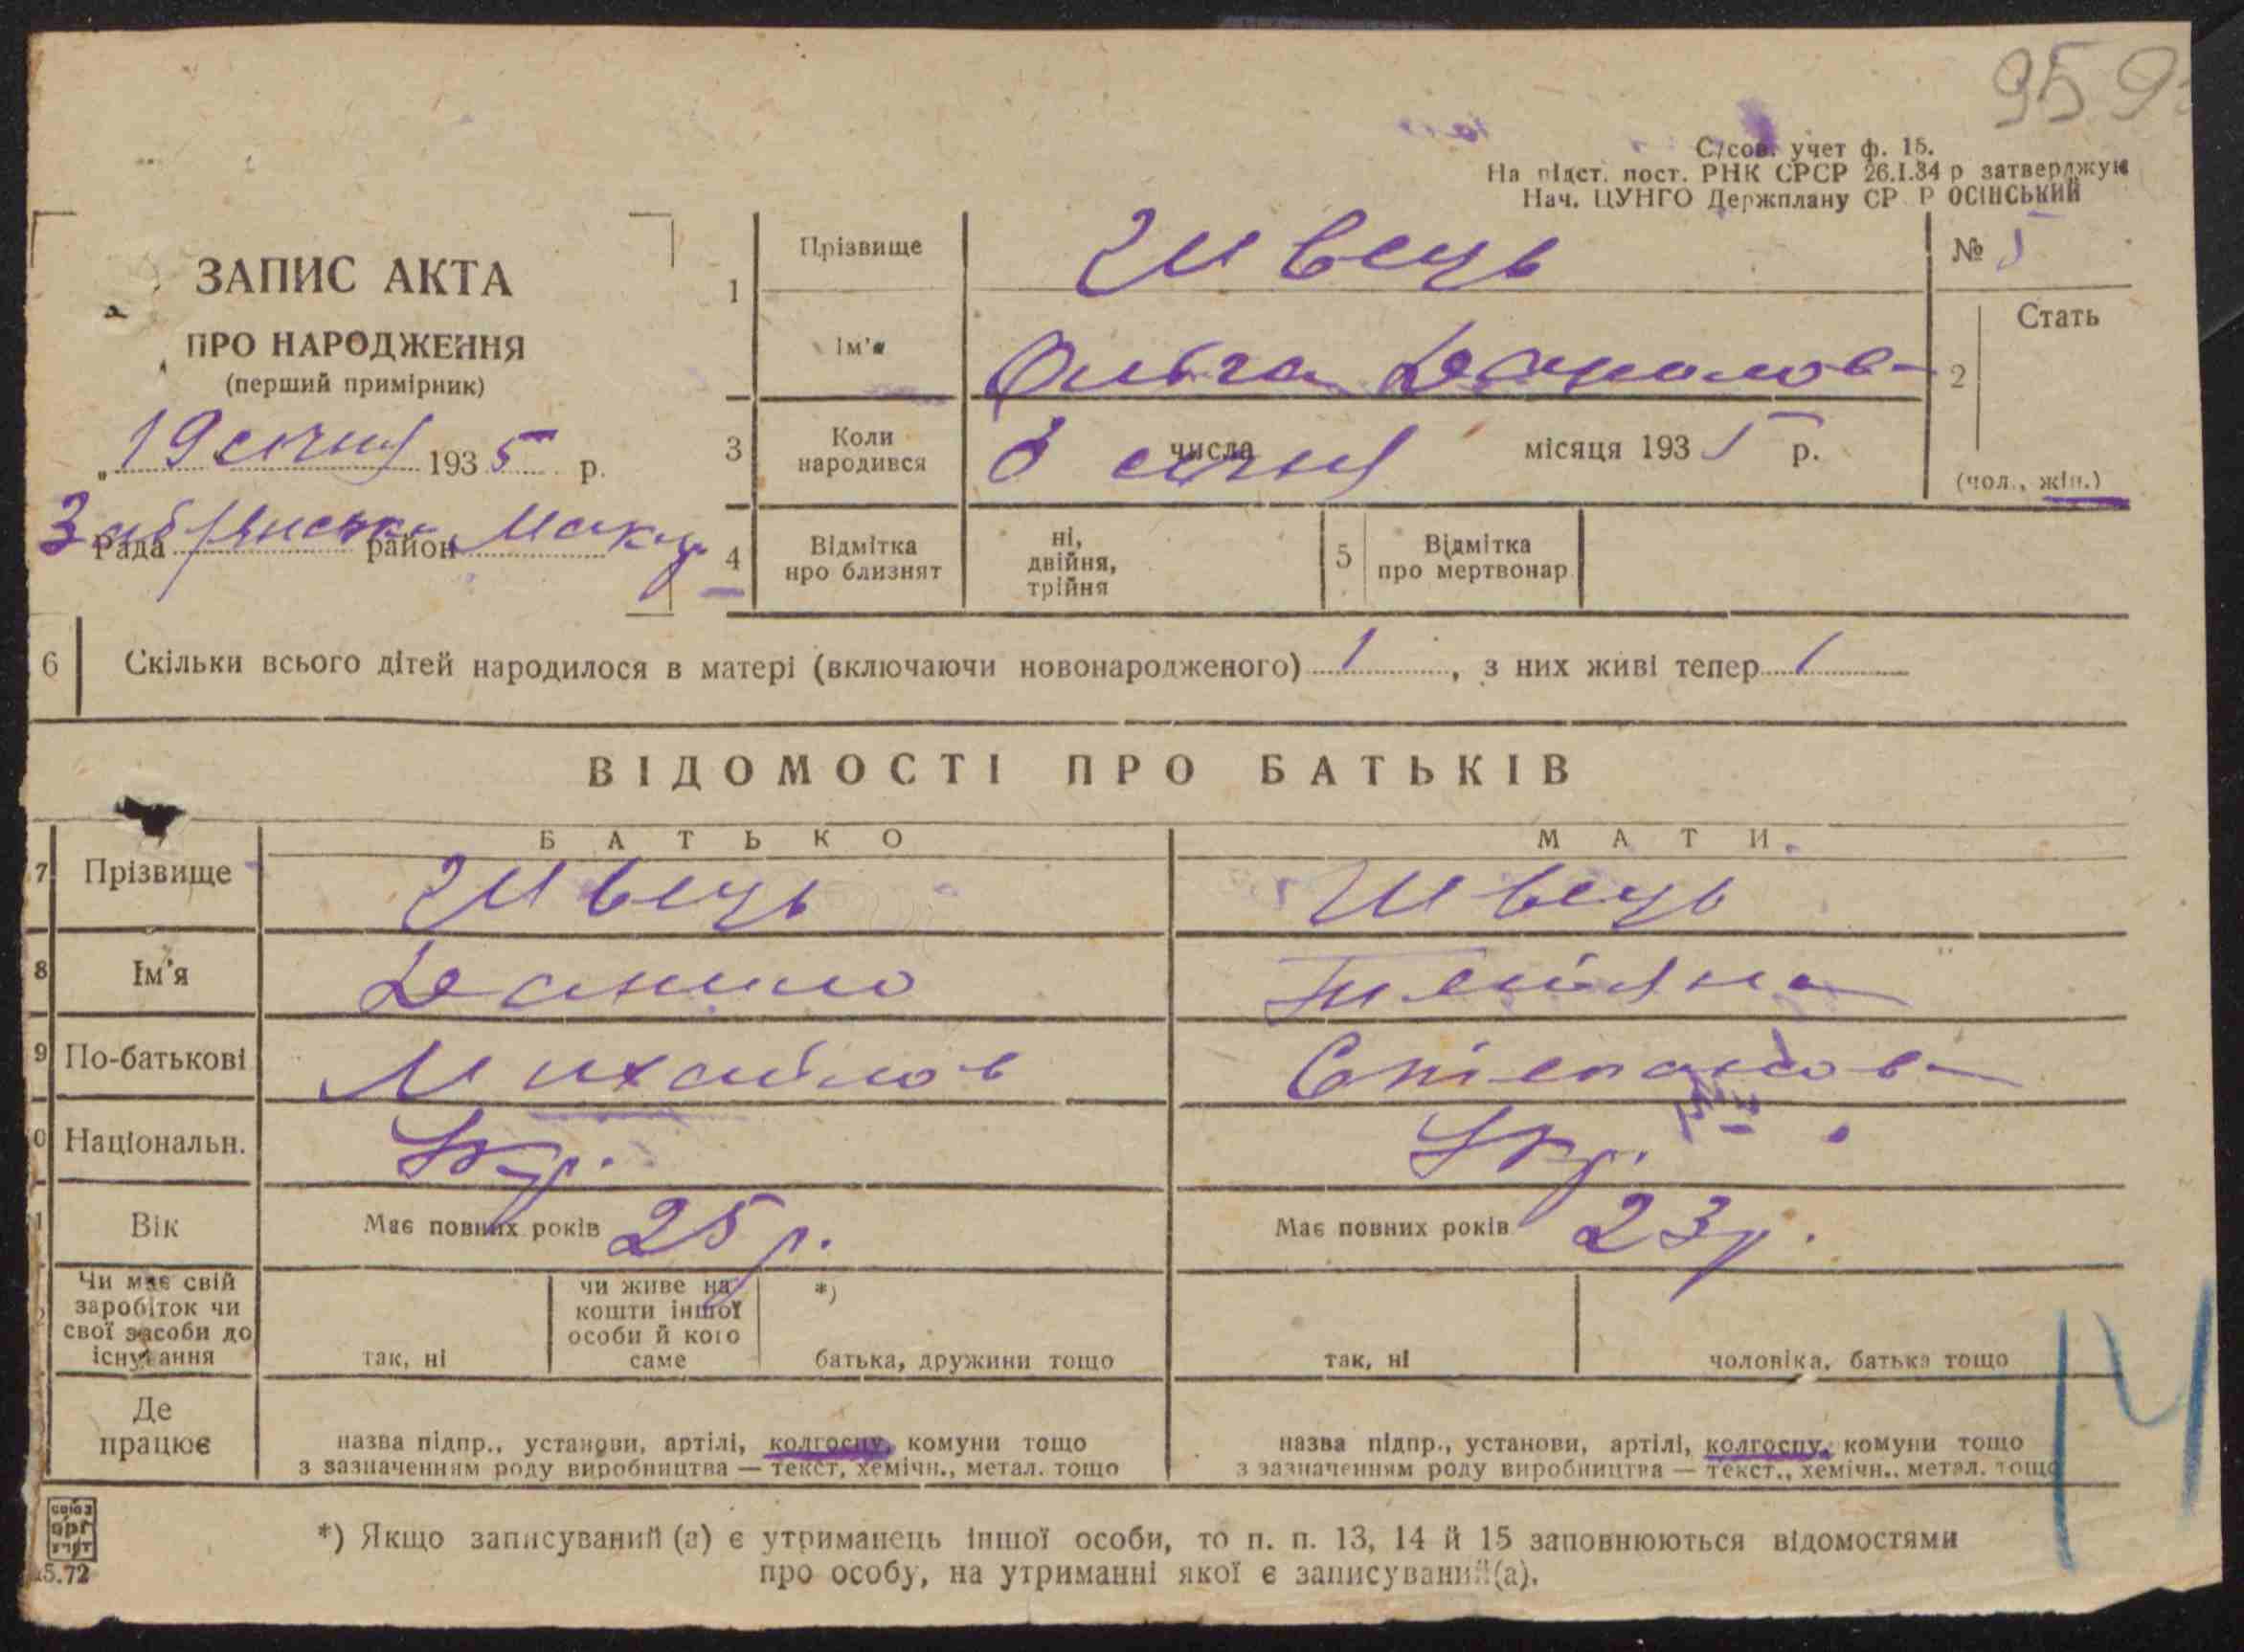 959
С/сов. учет ф. 15.
На підст. пост. РНК СРСР 26.I.34 р затверджую
Нач. ЦУНГО Держплану СР Р ОСІНСЬКИЙ
ЗАПИС АКТА
ПРО НАРОДЖЕННЯ
(перший примірник)
„19 січня 1935 р.
Рада район Макар
1 Прізвище Швець
Ім'я Ольга Данилов
№ 5
2 Стать
(чол., жін.)
3 Коли народився 8 числа січня місяця 1935 р.
4 Відмітка про близнят
ні, двійня, трійня
5 Відмітка про мертвонар
6 Скільки всього дітей народилося в матері (включаючи новонародженого) 1, з них живі тепер 1
ВІДОМОСТІ ПРО БАТЬКІВ
БАТЬКО МАТИ
7 Прізвище Швець Швець
8 Ім'я Данило Тетяна
9 По-батькові Михайлов Степанов
0 Національн. Укр. Укр.
1 Вік Має повних років 25 р. Має повних років 23 р.
Чи має свій заробіток чи свої засоби до існування
так, ні
чи живе на кошти іншої особи й кого саме
*)
батька, дружини тощо
так, ні
чоловіка, батька тощо
Де працює
назва підпр., установи, артілі, колгоспу, комуни тощо
з зазначенням роду виробництва — текст, хемічн., метал. тощо
назва підпр., установи, артілі, колгоспу, комуни тощо
з зазначенням роду виробництва — текст., хемічн., метал. тощо
14
союз
орг
учет
5.72
*) Якщо записуваний (а) є утриманець іншої особи, то п. п. 13, 14 й 15 заповнюються відомостями
про особу, на утриманні якої є записуваний(а).